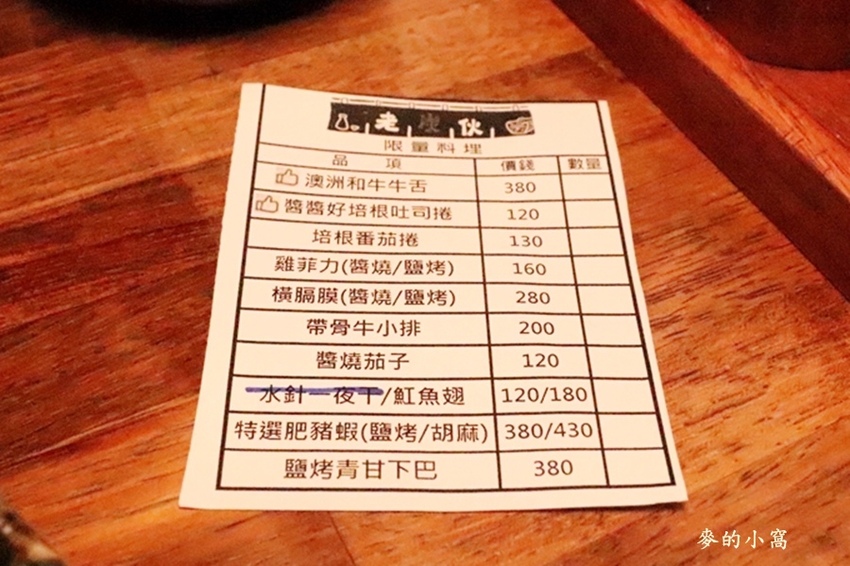 老虎伙
限量料理
品 項 價錢 數量
澳洲和牛牛舌 380
醬醬好培根吐司捲 120
培根番茄捲 130
雞菲力(醬燒/鹽烤) 160
橫膈膜(醬燒/鹽烤) 280
帶骨牛小排 200
醬燒茄子 120
水針一夜干/魟魚翅 120/180
特選肥豬蝦(鹽烤/胡麻) 380/430
鹽烤青甘下巴 380
麥的小窩